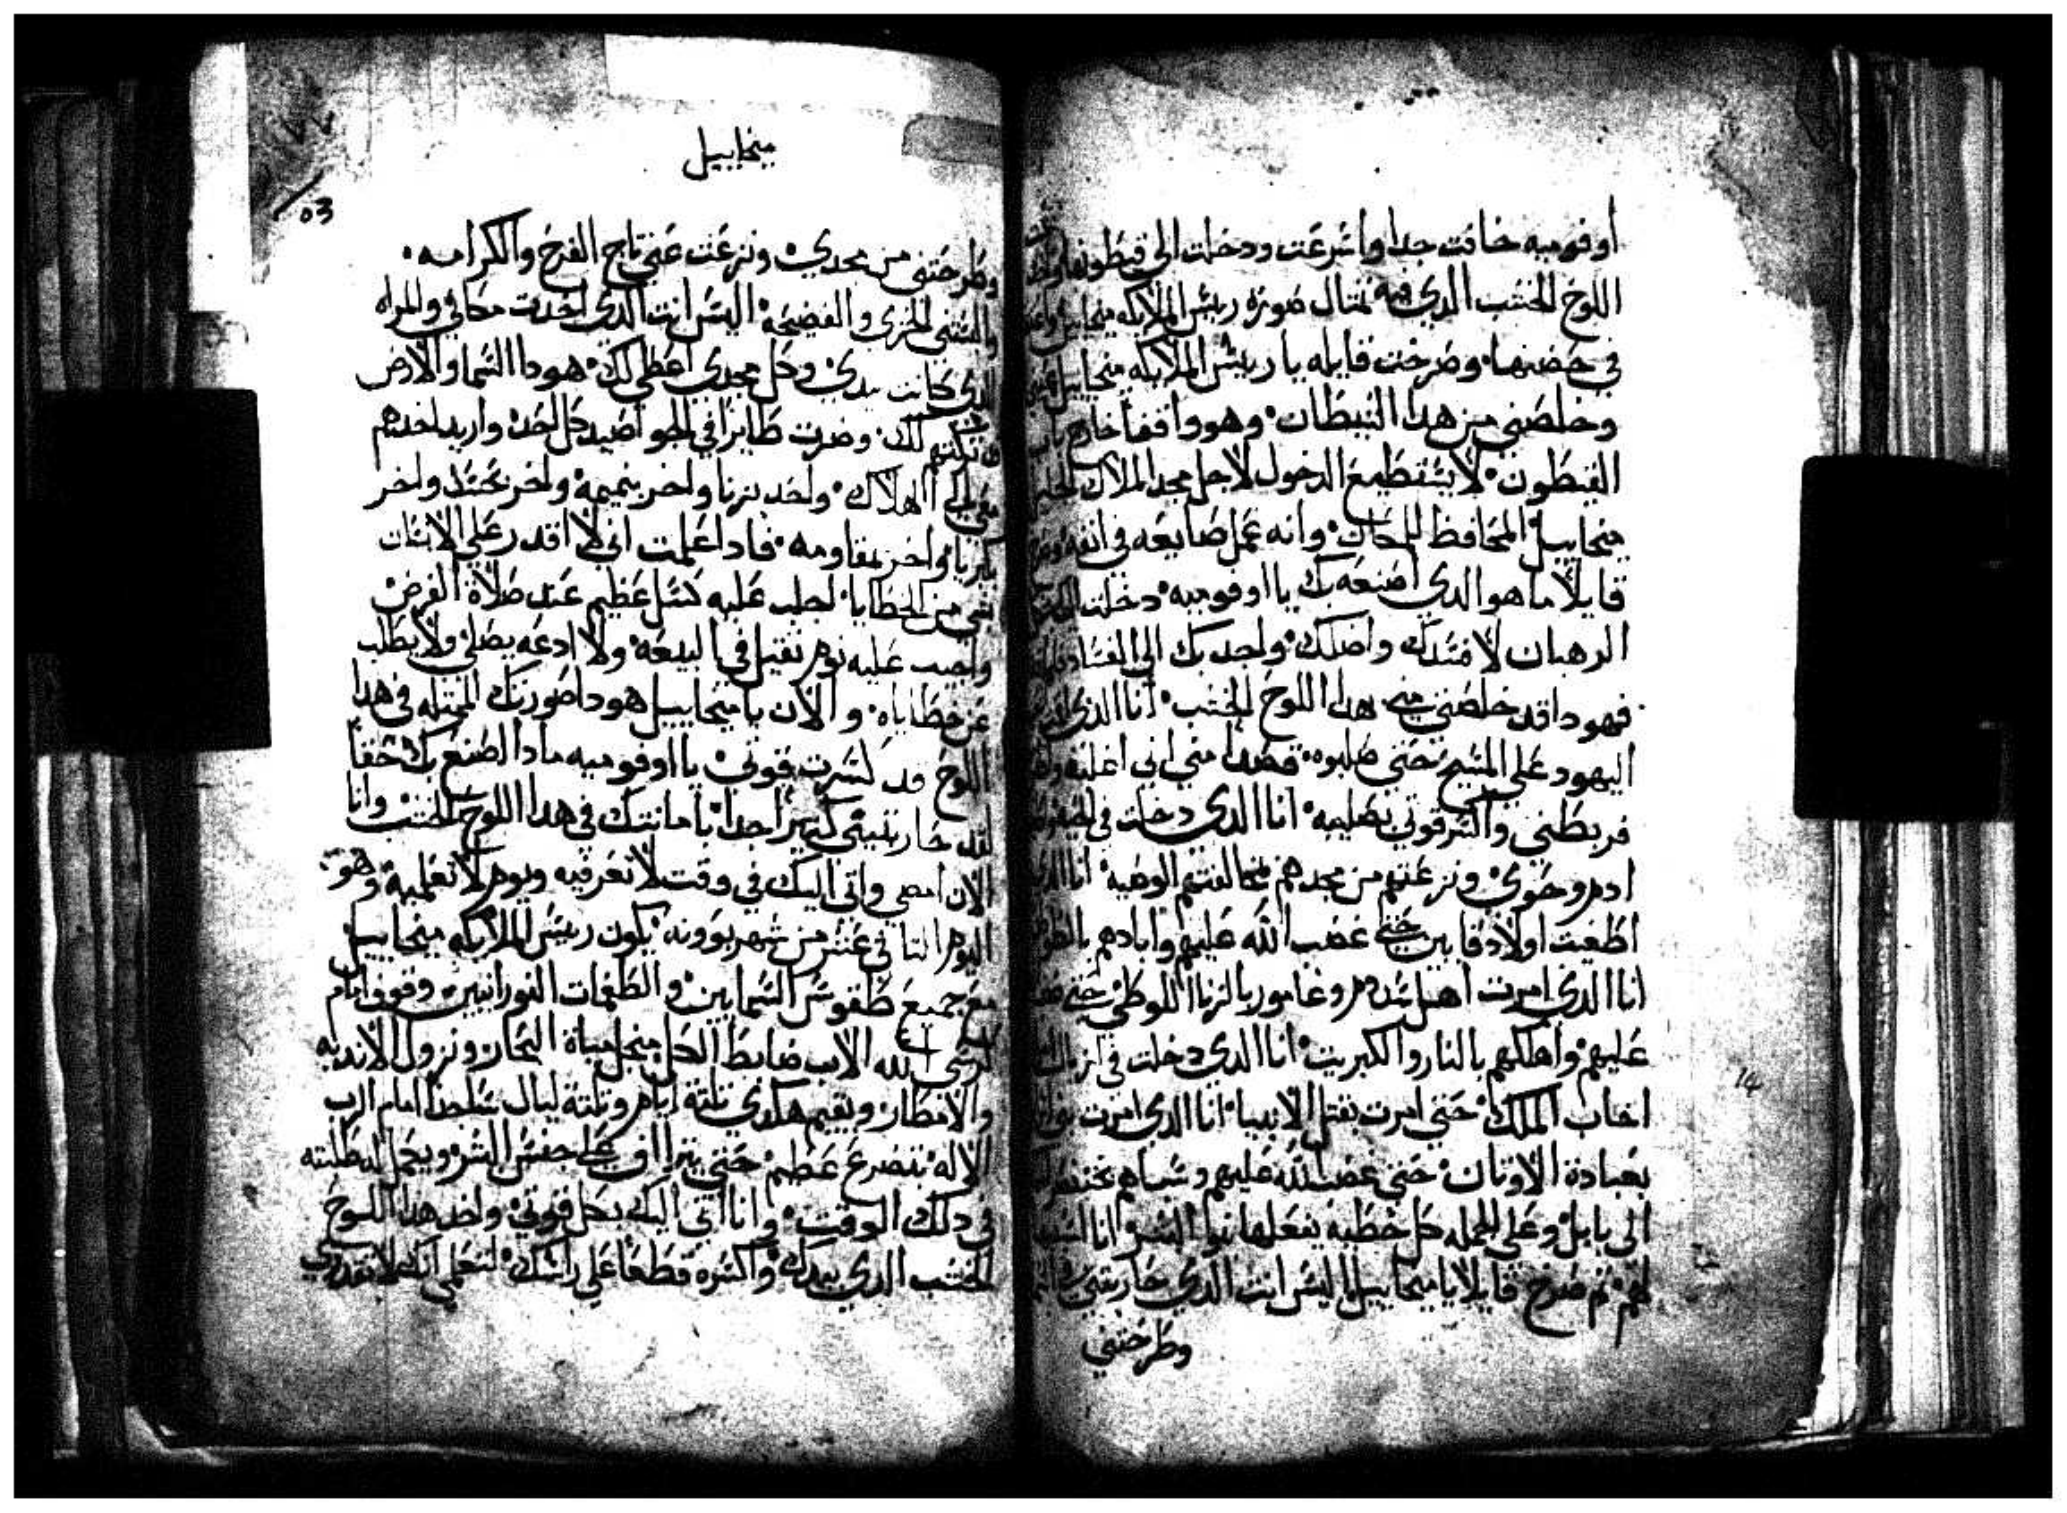 أوفوميه خافت جدا واسرعت ودخلت الي قيطونها
اللوح الخشب الذي فيه تمتال صورة رييس الملايكه ميخاييل
في حضنها وصرخت قايله يا رييس الملايكه ميخاييل
وخلصني من هدا الشيطان وهو واقفا خارج باب
القيطون لا يستطيع الدخول لاجل مجد الملاك الجليل
ميخاييل المحافظ للمكان وانه عمل صابعه في انفه
قايلا ما هو الدي اصنعه بك يا اوفوميه دخلت اليك
الرهبان لافسدك واضلك واجدبك الي
فهودا قد خلصتي مني بهدا اللوح الخشب انا الدي
اليهود علي المسيح حتي صلبوه فصدا مني اني اغلبه
فربطني واكسر قوتي بصليبه انا الدي دخلت في الحيه
ادم وحوي ونزعتهم من مجدهم بمخالفتهم الوصيه انا الدي
اطغيت اولاد قايين حتي غضب الله عليهم وابادهم بالطوفان
انا الدي امرت اهل سدوم وغامورا بالزنا اللوطي حتي
عليهم واهلكهم بالنار والكبريت انا الدي دخلت في ازبال
اخاب الملك حتي امرت بقتل الانبيا انا الدي امرت
بعبادة الاوتان حتي غضب الله عليهم وسباهم بختنصر
الي بابل وعلي الجمله كل خطيه يفعلها بنوا البشر انا السبب
لهم تم صرخ قايلا يا ميخاييل اليس انت الدي حاربتني
وطرحتني
ميخاييل
٥٣
وطرحتني من مجدي ونزعت عني تاج الفرح والكرامه
والبستني الخزي والفضيحة اليس انت الدي اخدت مكاني والمراه
الدي كانت بيدي وكل مجدي اعطي لك هودا السما والارض
قد تركتهم لك وصرت طايرا في الجو اصيد كل احد واريد اخدهم
معي الي الهلاك واحد بزنا واخر بنميمة واخر بحسد واخر
بكبريا واخر بمقاومه فادا علمت اني لا اقدر علي الانسان
بشي من الخطايا اجلب عليه كسل عظيم عند صلاة الفرض
واجيب عليه نوم تقيل في البيعة ولا ادعه يصلي ولا يطلب
عن خطاياه والان يا ميخاييل هودا صورتك الممتله في هدا
اللوح قد كسرت قوتي يا اوفوميه مادا اصنع بك حقا
لقد حاربتيني كتيرا جدا بامانتك في هدا اللوح الخشب وانا
الان امضي واتي اليك في وقت لا تعرفيه ويوم لا تعلميه وهو
اليوم التاني عشر من شهر بوونه يكون رييس الملايكه ميخاييل
مع جميع طقوس السمايين والطغمات النورانيين وقوف امام
كرسي الله الاب ضابط الكل من اجل مياة البحار ونزول الانديه
والامطار ويقيم هكدي تلتة ايام وتلتة ليال ساجدا امام الرب
الاله بتضرع عظيم حتي يتراف علي جنس البشر ويكمل له طلبته
في دلك الوقت وانا اتي اليك بكل قوتي واخد هدا اللوح
الخشب الدي بيدك واكسره قطعا علي راسك لتعلمي انك لا تقدري
14